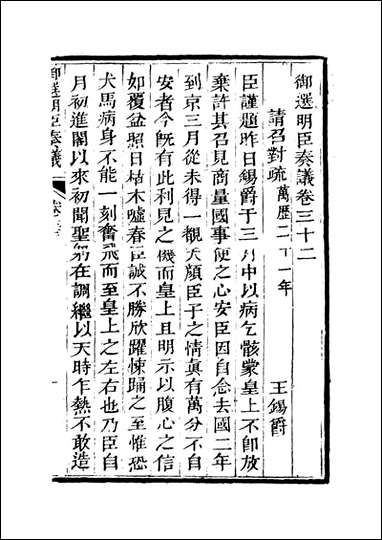 御選明臣奏議卷三十二
請召對疏萬歷二十一年
王錫爵
臣謹題昨日錫爵于三月中以病乞骸蒙皇上不即放
棄許其召見商量國事便之心安臣因自念去國二年
到京三月從未得一覩天顏臣子之情真有萬分不自
安者今既有此利見之機而皇上且明示以腹心之信
如覆盆照日枯木噓春臣誠不勝欣躍悚踴之至惟恐
犬馬病身不能一刻奮飛而至皇上之左右也乃臣自
月初進閣以來初聞聖躬在調繼以天時乍熱不敢造
御選明臣奏議